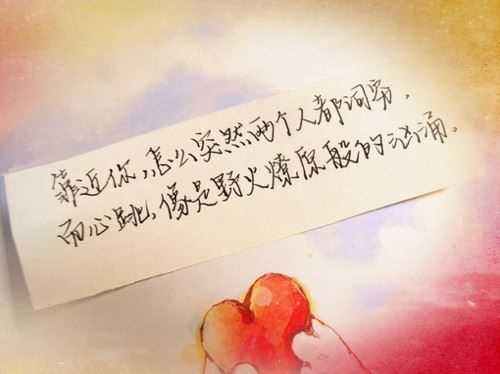 靠近你,怎么突然两个人都词穷,
而心跳,像是野火燎原般的汹涌。